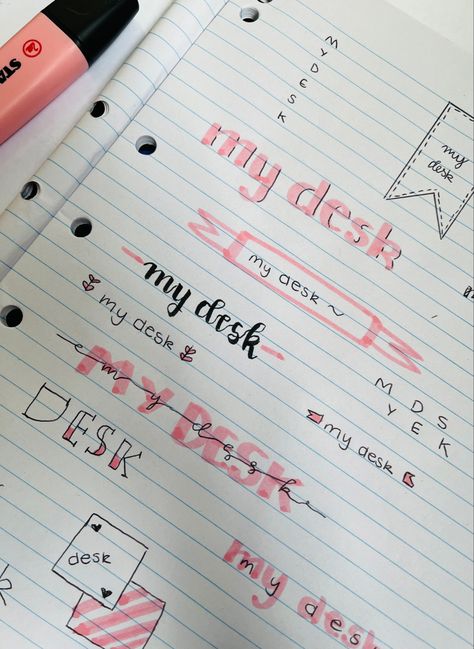 STA
M
Y
D
E
S
K
my
desk
my desk
my desk ~
my desk
my desk
M D S
Y E K
MY DESK
my desk
my desk
DESK
desk
my desk